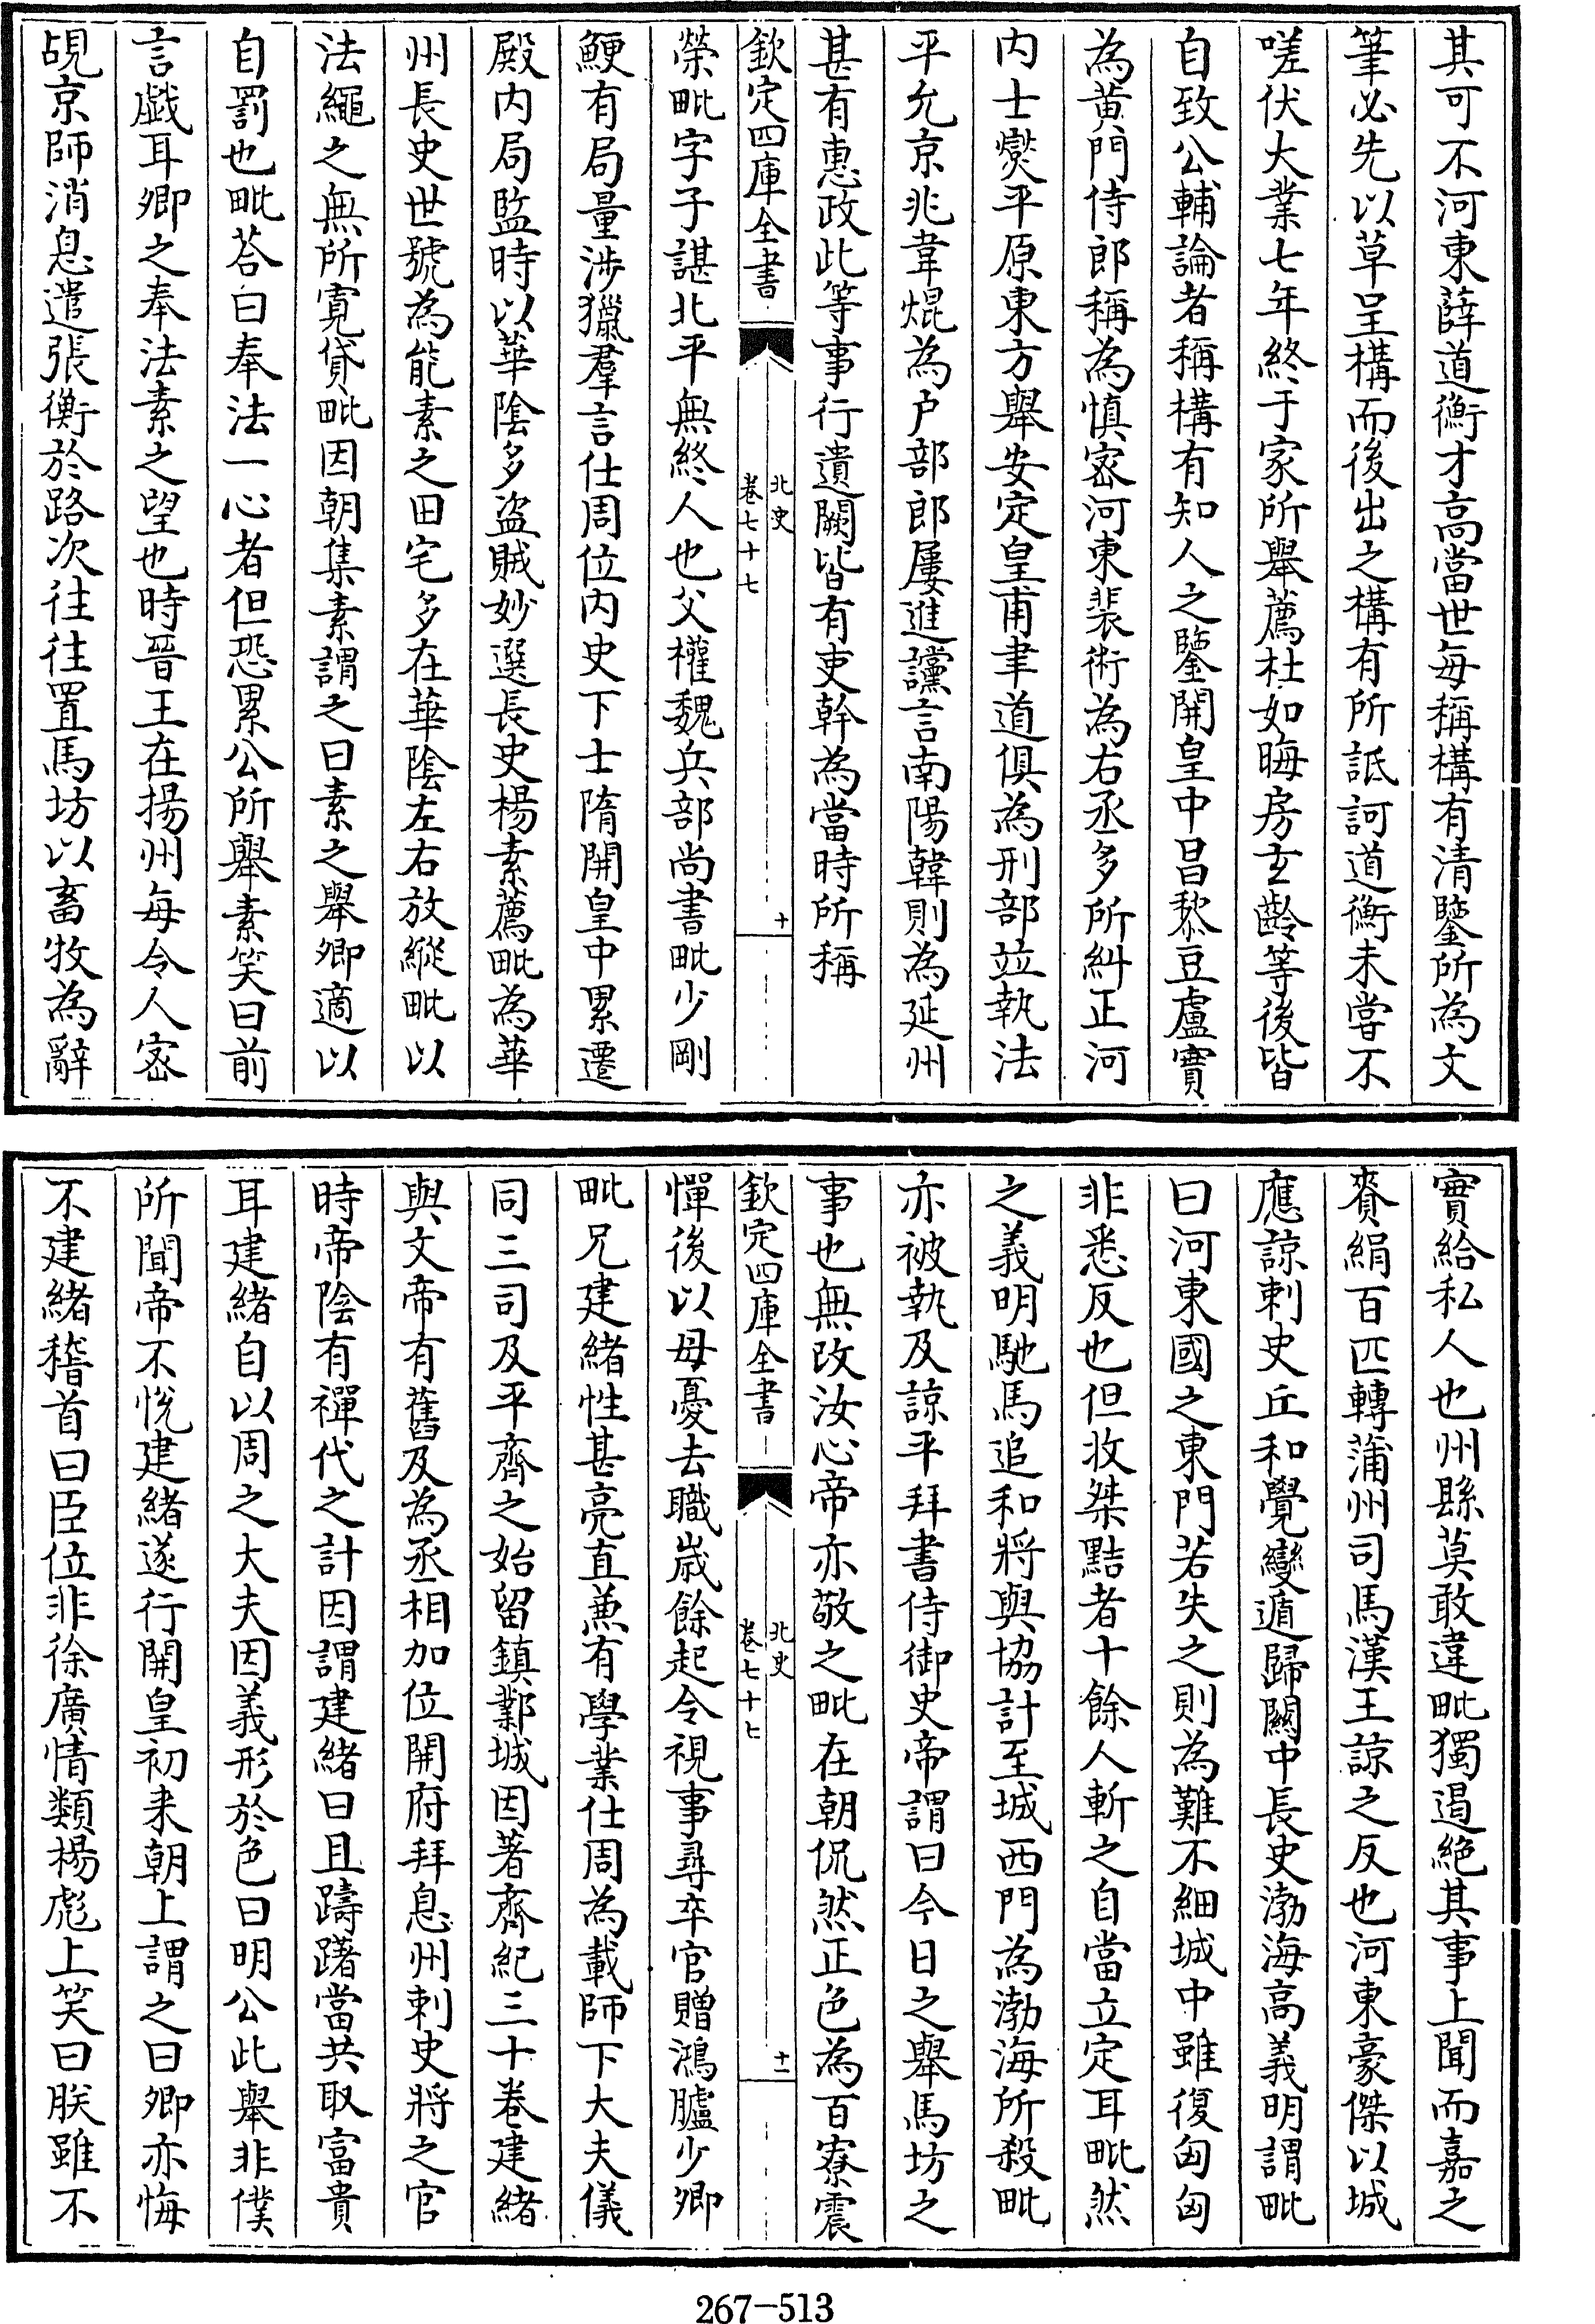 其可不河東薛道衡才高當世每稱構有清鑒所為文
筆必先以草呈構而後出之構有所詆訶道衡未嘗不
嗟伏大業七年終于家所舉薦杜如晦房玄齡等後皆
自致公輔論者稱構有知人之鑒開皇中昌黎豆盧寔
為黃門侍郎稱為慎密河東裴術為右丞多所糾正河
内士爕平原東方舉安定皇甫聿道俱為刑部竝執法
平允京兆韋焜為户部郎屢進讜言南陽韓則為延州
甚有惠政此等事行遺闕皆有吏幹為當時所稱
欽定四庫全書
北史
卷七十七
十
榮毗字子諶北平無終人也父權魏兵部尚書毗少剛
鯁有局量涉獵羣言仕周位内史下士隋開皇中累遷
殿内局監時以華陰多盜賊妙選長史楊素薦毗為華
州長史世號為能素之田宅多在華陰左右放縱毗以
法繩之無所寛貸毗因朝集素謂之曰素之舉卿適以
自罰也毗荅曰奉法一心者但恐累公所舉素笑曰前
言戯耳卿之奉法素之望也時晉王在揚州每令人密
覘京師消息遣張衡於路次往往置馬坊以畜牧為辭
實給私人也州縣莫敢違毗獨遏絶其事上聞而嘉之
賚絹百匹轉蒲州司馬漢王諒之反也河東豪傑以城
應諒刺史丘和覺變遁歸關中長史渤海高義明謂毗
曰河東國之東門若失之則為難不細城中雖復匈匈
非悉反也但收桀黠者十餘人斬之自當立定耳毗然
之義明馳馬追和將與協計至城西門為渤海所殺毗
亦被執及諒平拜書侍御史帝謂曰今日之舉馬坊之
事也無改汝心帝亦敬之毗在朝侃然正色為百寮震
欽定四庫全書
北史
卷七十七
十一
憚後以母憂去職嵗餘起令視事尋卒官贈鴻臚少卿
毗兄建緒性甚亮直兼有學業仕周為載師下大夫儀
同三司及平齊之始留鎮鄴城因著齊紀三十卷建緒
與文帝有舊及為丞相加位開府拜息州刺史將之官
時帝陰有禪代之計因謂建緒曰且躊躇當共取富貴
耳建緒自以周之大夫因義形於色曰明公此舉非僕
所聞帝不悅建緒遂行開皇初來朝上謂之曰卿亦悔
不建緒稽首曰臣位非徐廣情類楊彪上笑曰朕雖不
267-513